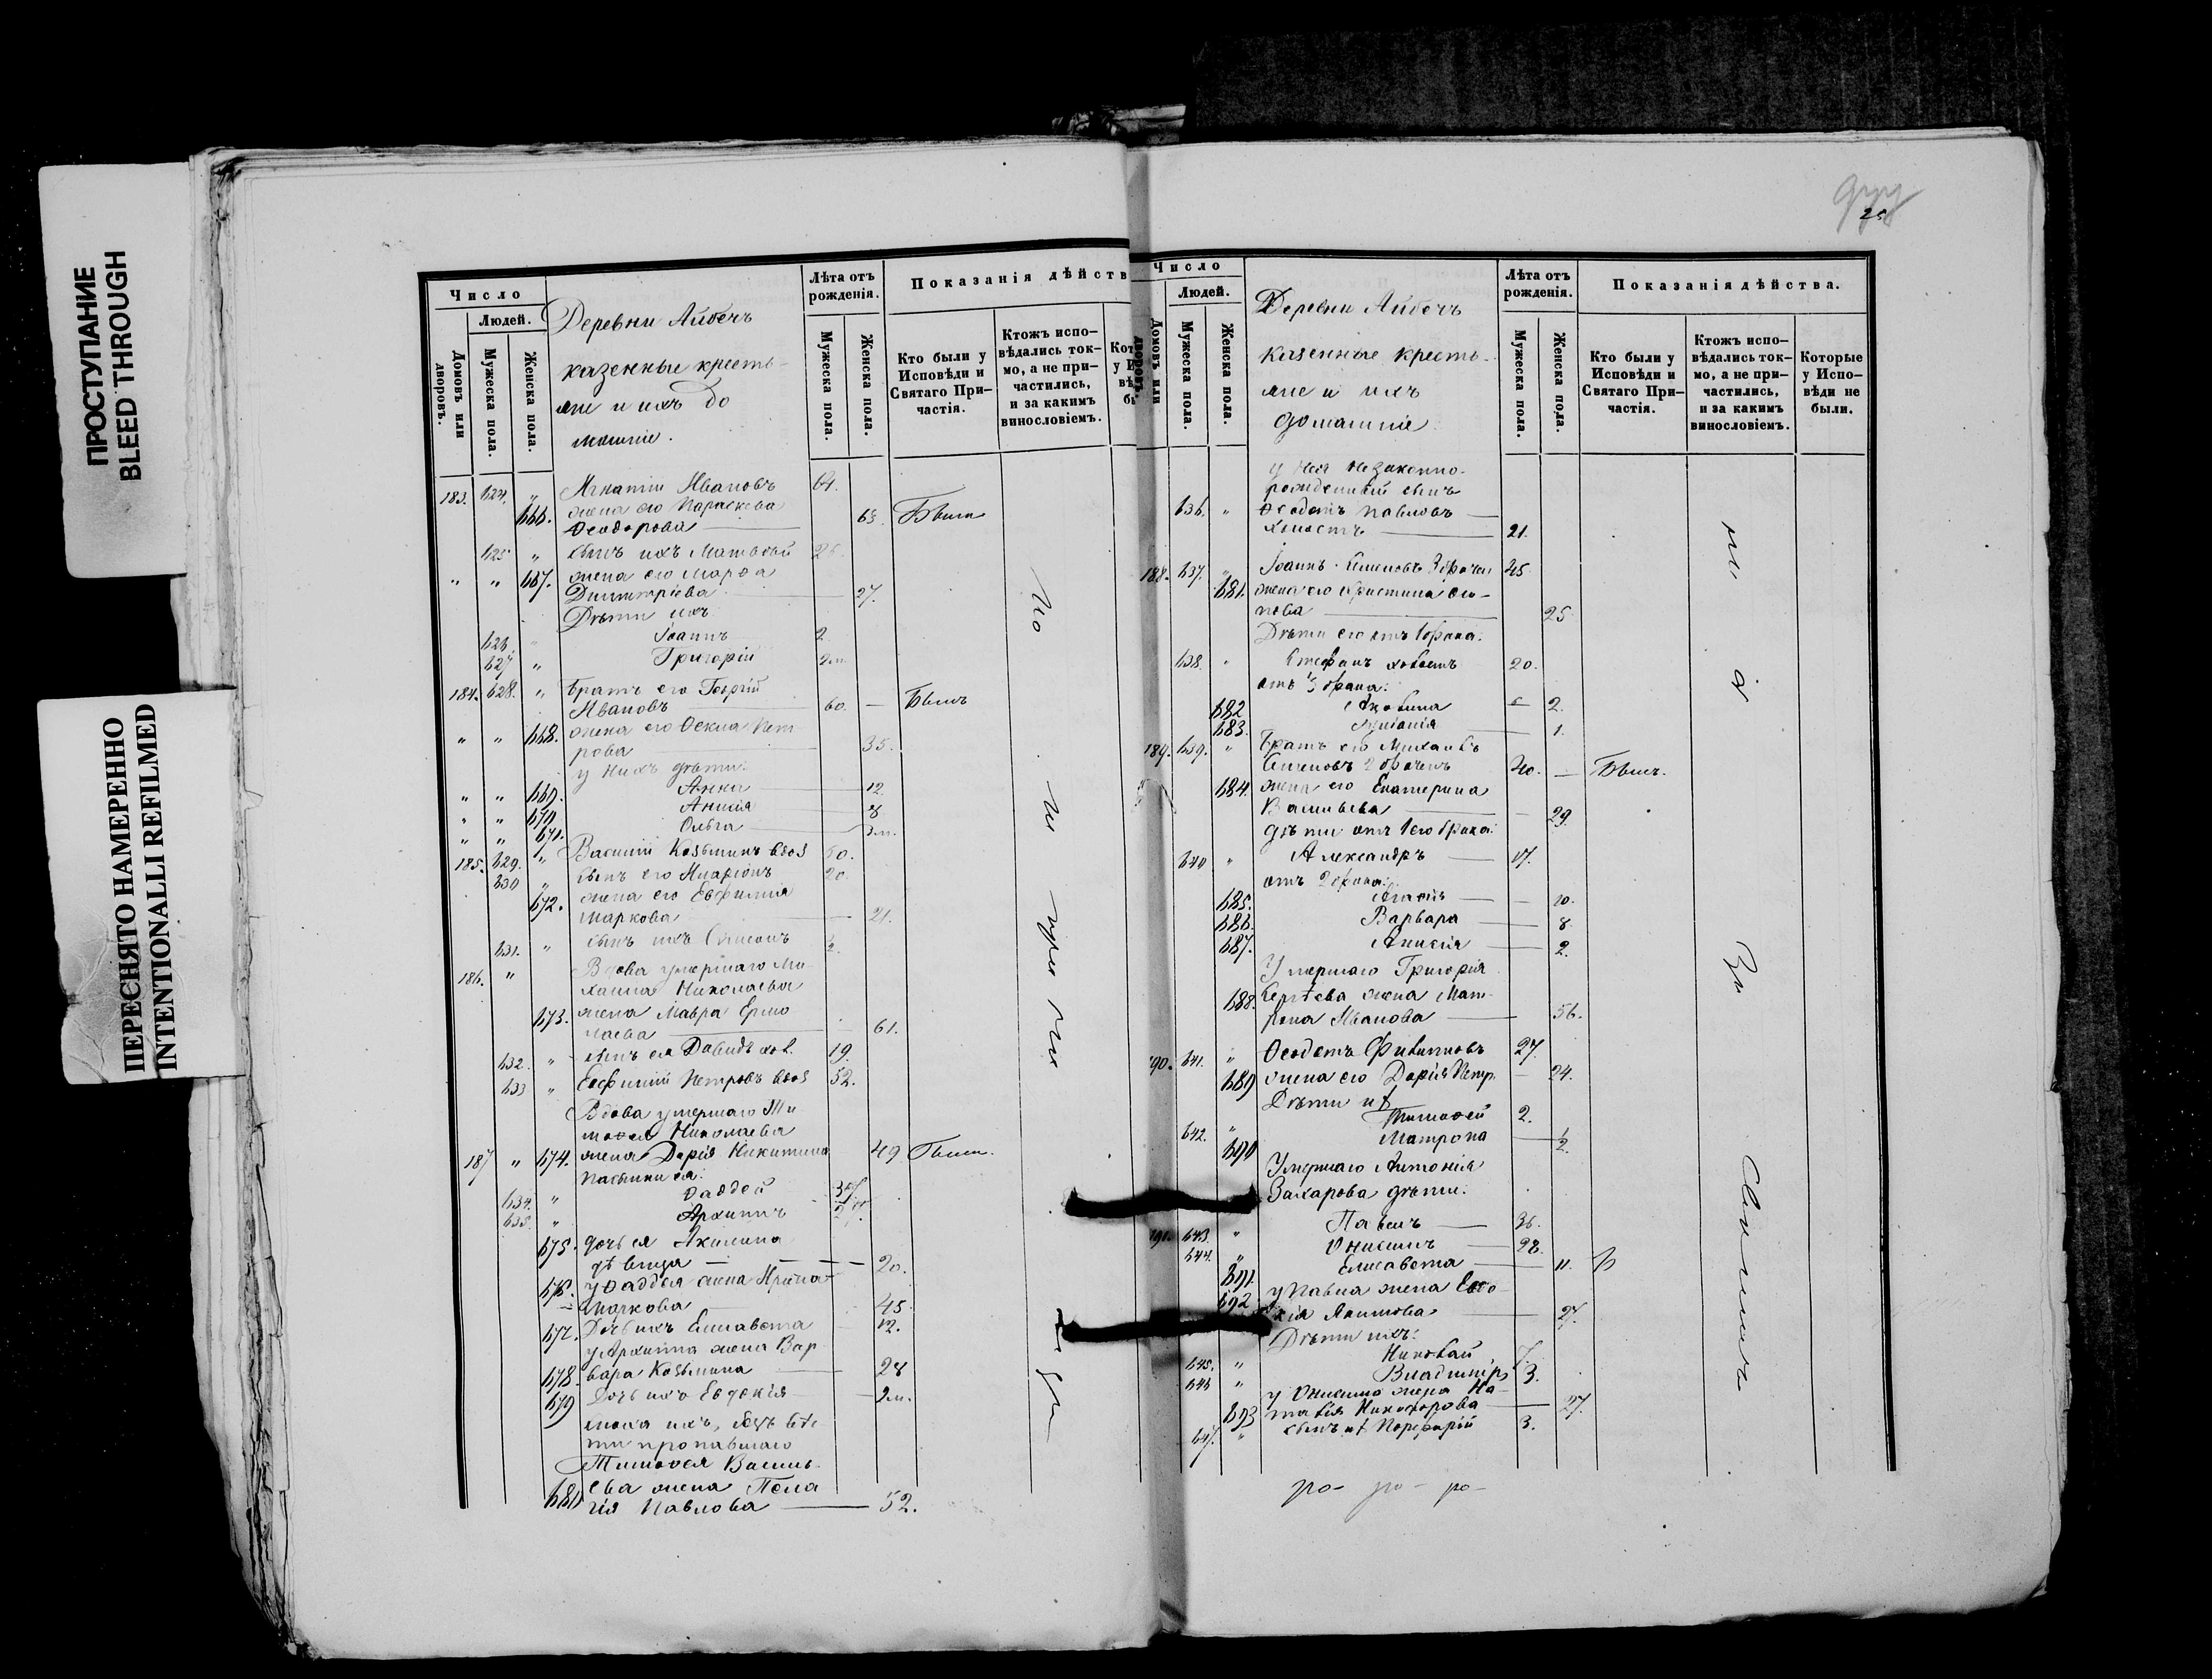 ПРОСТУПАНИЕ
BLEED THROUGH
ПЕРЕСНЯТО НАМЕРЕННО
INTENTIONALLI REFILMED
Число
Людей.
Домовъ или дворовъ.
Мужеска пола.
Женска пола.
Деревни Айбечъ
казенные кресть-
яне и ихъ до
машніе.
Лѣта отъ
рожденія.
Мужеска пола.
Женска пола.
Показанія дѣйств
Кто были у
Исповѣди и
Святаго При-
частія.
Ктожъ испо-
вѣдались ток-
мо, а не при-
частились,
и за какимъ
винословіемъ.
183. 624. " Игнатій Ивановъ 64.
666. жена его Параскева
Ѳеодорова 63. Были
625 " сынъ ихъ Матвѣй 25.
" " 667. жена его Марѳа
Димитріева 27.
Дѣти ихъ
626. " Іоаннъ 2.
627 " Григорій 2м.
184. 628. " Братъ его Георгій
Ивановъ 60. — Былъ
" " 668. жена его Ѳекла Пет
рова 35.
у нихъ дѣти:
" " 669. Анна 12.
" " 670 Анисія 8
" " 671. Ольга 3м.
185. 629. " Василій Козьминъ вдов 50.
630 " сынъ его Иларіонъ 20.
672. жена его Евфимія
Маркова 21.
631. " сынъ ихъ Симеонъ
186. " Вдова умершаго Ми
хаила Николаева
673. жена Мавра Ермо
лаева 61.
632. " сынъ ея Давидъ хол. 19.
633 " Евфимій Петровъ вдов 52.
Вдова умершаго Ти
моѳея Николаева
187 " 674. жена Дарія Никитина 49 Были.
пасынки ея:
634. " Ѳаддей 37.
635. " Архиппъ 27.
675. дочь ея Акилина
дѣвица 20.
676. у Ѳаддея жена Ирина
Маркова 45
677. Дочь ихъ Елисавета 12.
у Архиппа жена Вар
678. вара Козьмина 28
679 Дочь ихъ Евдокія 2м.
сноха ихъ, безъ вѣс
ти пропавшаго
Тимоѳея Василь
680 ева жена Пела
гія Павлова 52.
25
Число
Людей.
Домовъ или дворовъ.
Мужеска пола.
Женска пола.
Деревни Айбечъ
казенные кресть-
яне и ихъ
домашніе
Лѣта отъ
рожденія.
Мужеска пола.
Женска пола.
Показанія дѣйства.
Кто были у
Исповѣди и
Святаго При-
частія.
Ктожъ испо-
вѣдались ток-
мо, а не при-
частились,
и за какимъ
винословіемъ.
Которые
у Испо-
вѣди не
были.
у нея незаконно-
рожденный сынъ
636. " Ѳеодотъ Павловъ
холостъ 21.
188. 637. " Іоаннъ Сименовъ 3 брачен 45
681. жена его Христина Оси-
пова 25.
Дѣти его отъ 1 брака:
638. " Стефанъ холостъ 20.
отъ 3 брака:
682 Акилина 2.
683. 1.
189. 639. " Братъ его Михаилъ
Сименовъ 2 браченъ 40. — Былъ.
684. жена его Екатерина
Васильева 29.
дѣти отъ 1го брака:
640 " Александръ 17.
отъ 2 брака:
685. 10.
686. Варвара 8.
687. Анисія 2.
Умершаго Григорія
688. Сергѣева жена Мат-
рона Иванова 56.
190. 641. " Ѳеодотъ Филипповъ 27.
689 жена его Дарія Петр. 24.
Дѣти их
642. " Тимоѳей 2.
690 Матрона 1/2
Умершаго Антонія
Захарова дѣти:
191. 643. " Павелъ 36.
644. " Онисимъ 28.
691. Елисавета 11.
692 у Павла жена Евдо
кія Якимова 27.
Дѣти ихъ:
645. " Николай 7.
646 " Владиміръ 3.
у Онисима жена На-
693 талія Никифорова 27.
647. " сынъ их Порфирій 3.
ро- ро- ро-